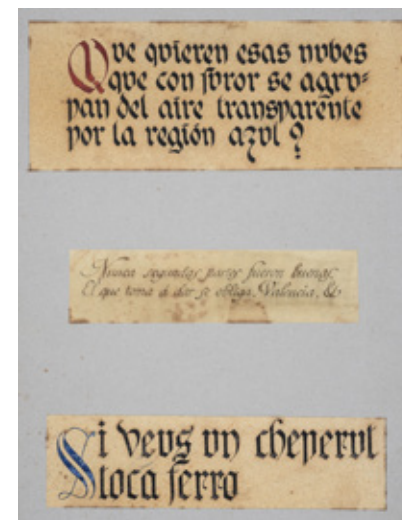 Que quieren esas nubes
que con furor se agru=
pan del aire transparente
por la región azul?
Nunca segundas partes fueron buenas
El que toma á dar se obliga. Valencia, &
Si veus un cheperut
toca ferro